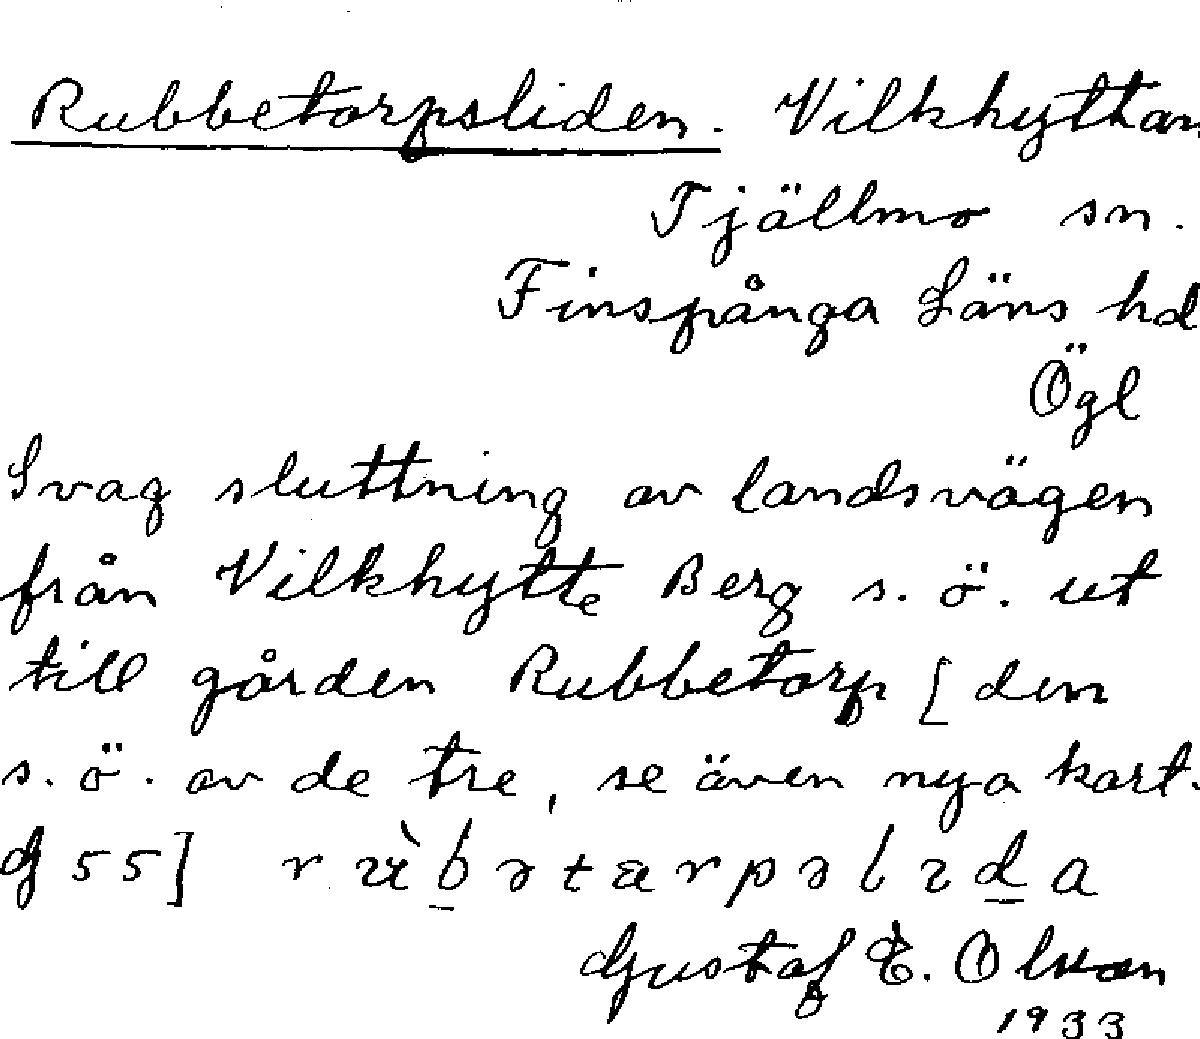 Rubbetorpsliden. Vilkhyttan
Tjällmo sn.
Finspånga Läns hd
Ögl
Svag sluttning av landsvägen
från Vilkhytte Berg s. ö. ut
till gården Rubbetorp [den
s. ö. av de tre, se även nya kart.
55]
Gustaf E. Olsson
1933